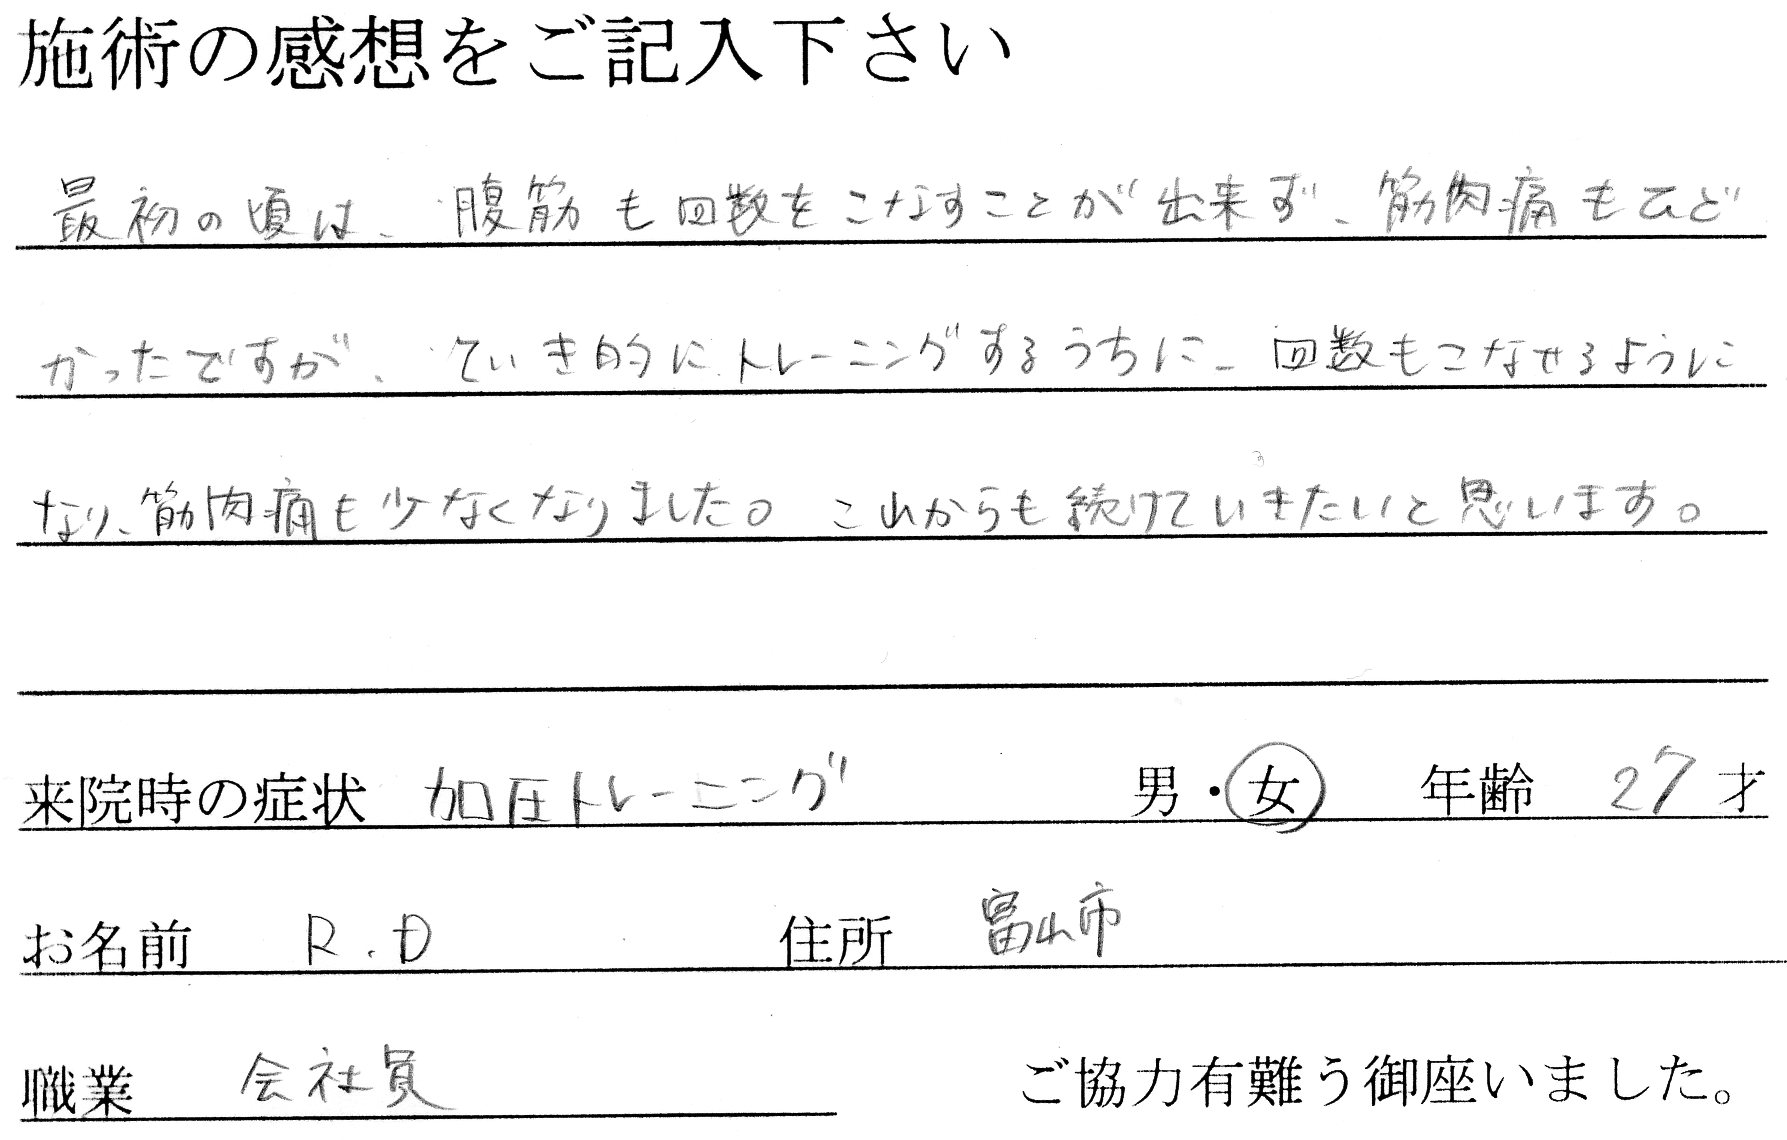 施術の感想をご記入下さい
最初の頃は、腹筋も回数をこなすことが出来ず、筋肉痛もひど
かったですが、ていき的にトレーニングするうちに、回数もこなせるように
なり、筋肉痛も少なくなりました。これからも続けていきたいと思います。
来院時の症状 加圧トレーニング 男・女 年齢 27才
お名前 R.D 住所 富山市
職業 会社員 ご協力有難う御座いました。